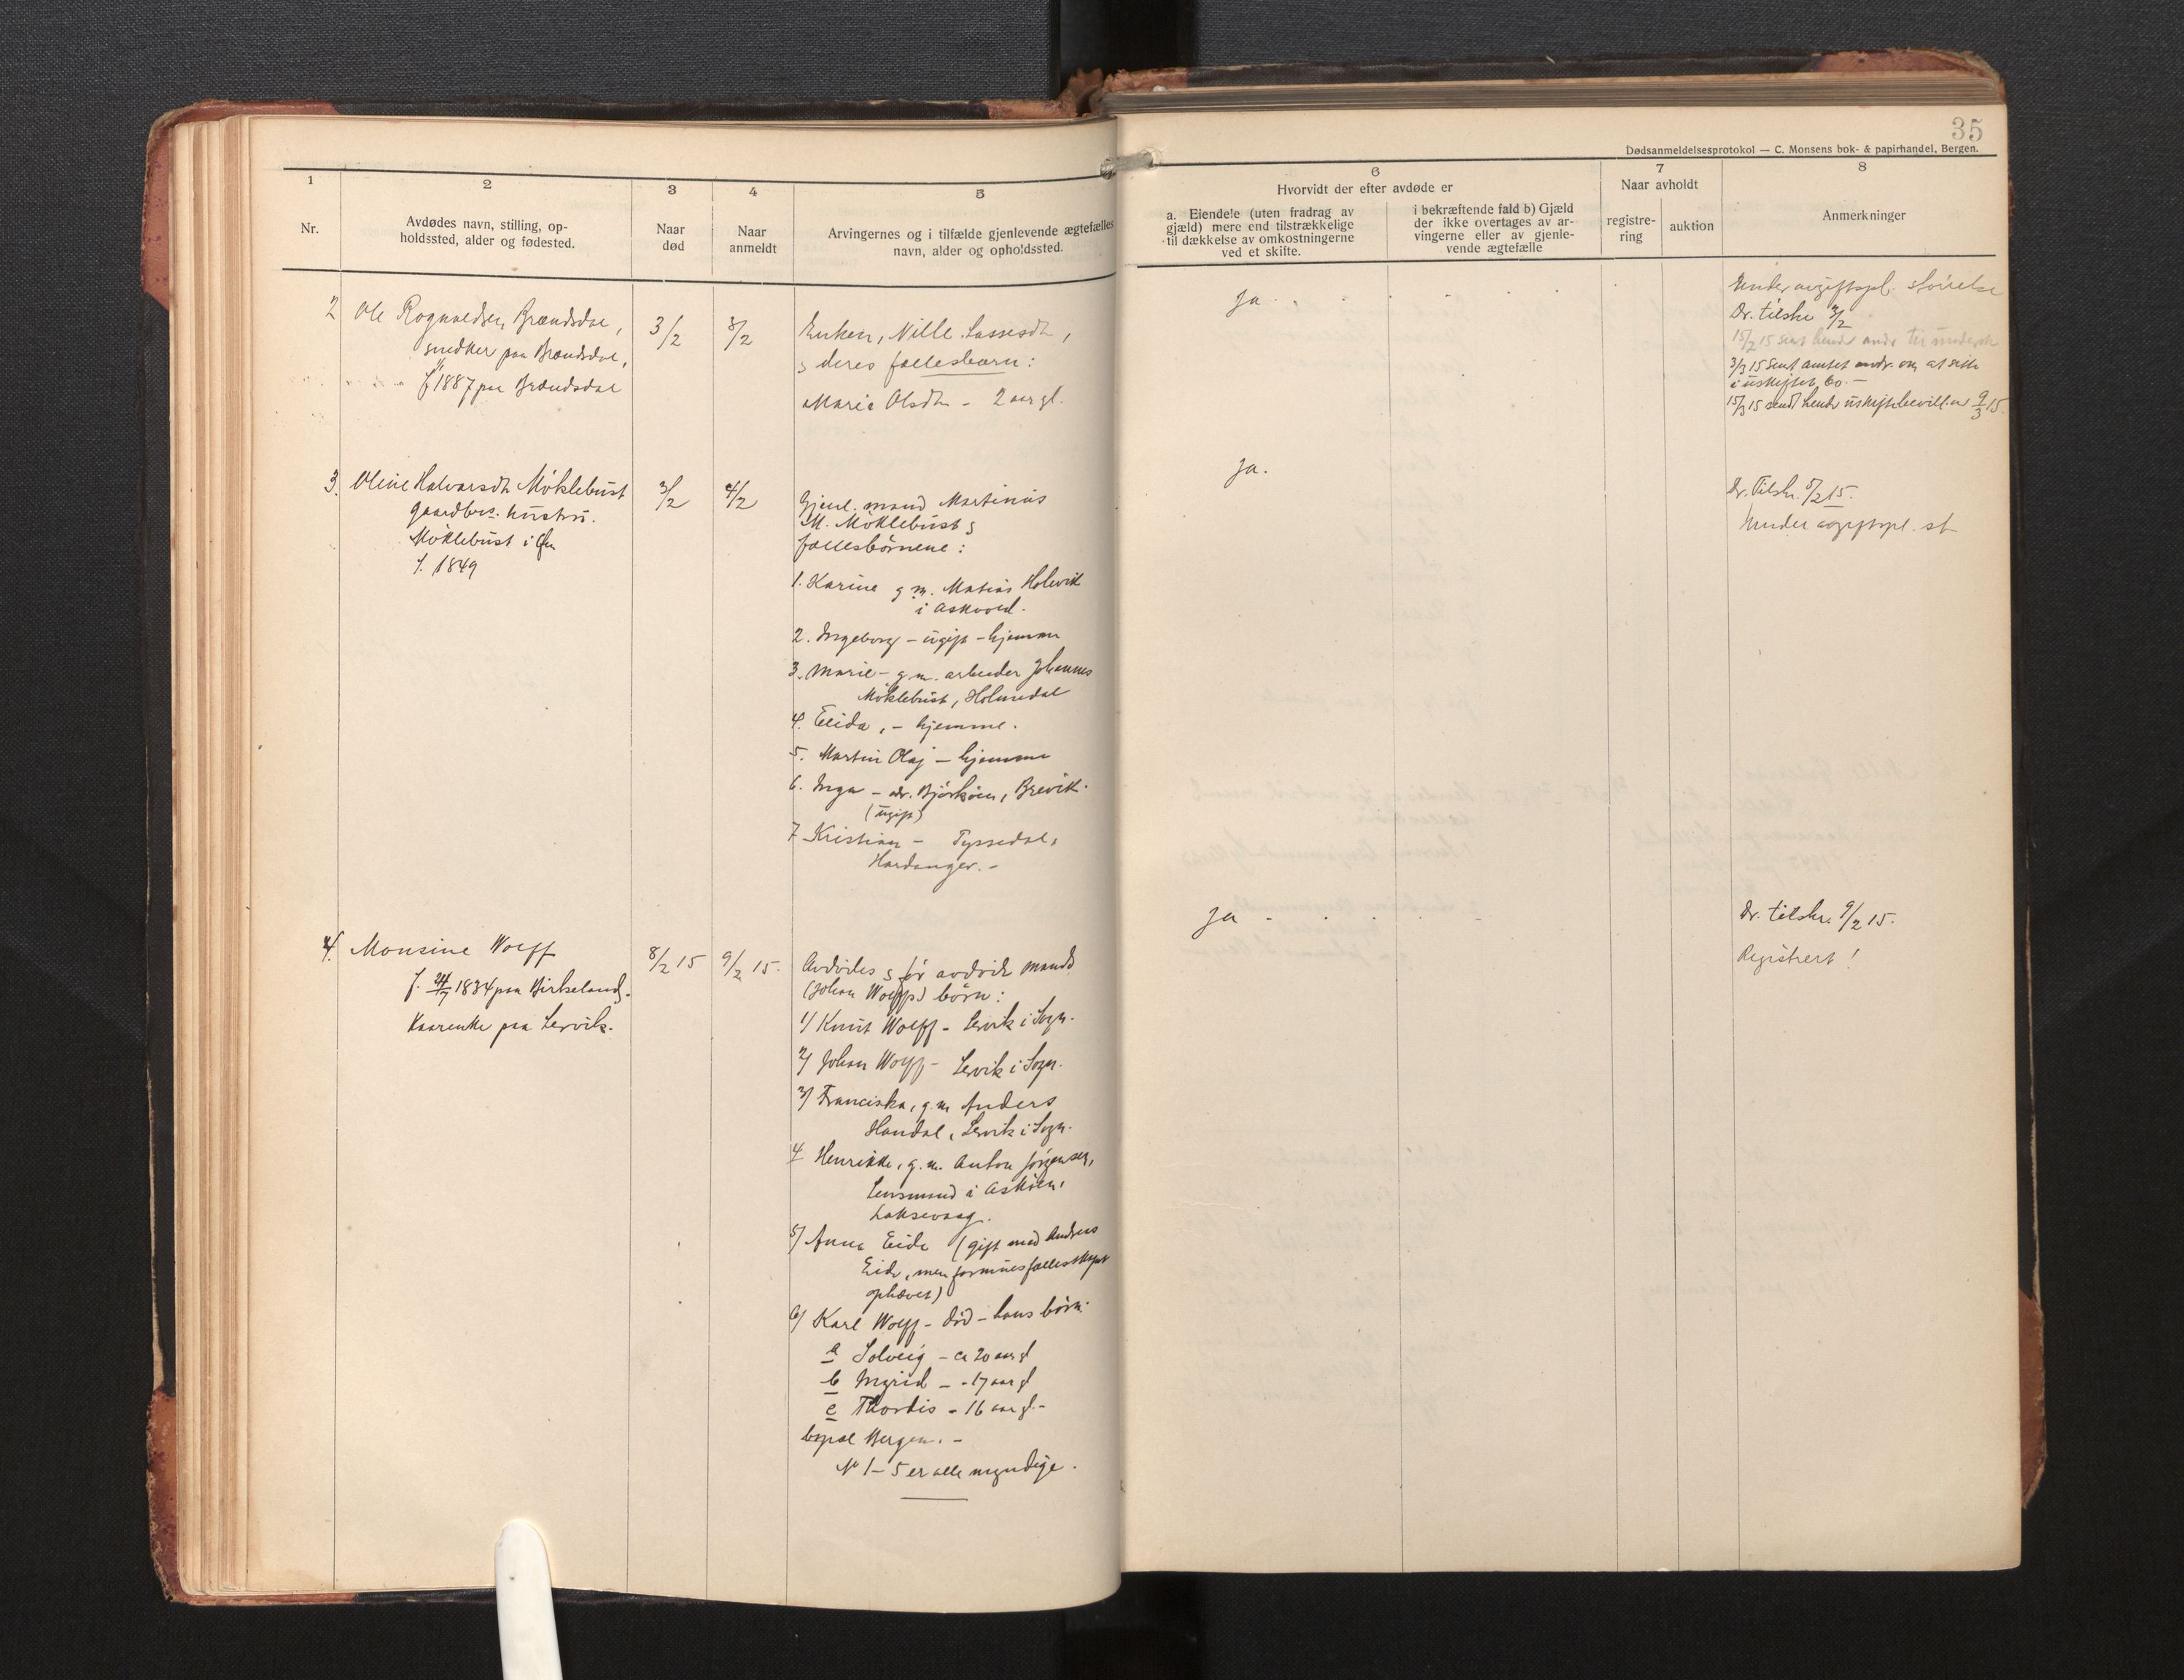 35
Dødsanmeldelsesprotokol — C. Monsens bok- & papirhandel, Bergen.
1
Nr.
2
Avdødes navn, stilling, op-
holdssted, alder og fødested.
3
Naar
død
4
Naar
anmeldt
5
Arvingernes og i tilfælde gjenlevende ægtefælles
navn, alder og opholdssted.
6
Hvorvidt der efter avdøde er
a. Eiendele (uten fradrag av
gjæld) mere end tilstrækkelige
til dækkelse av omkostningerne
ved et skifte.
i bekræftende fald b) Gjæld
der ikke overtages av ar-
vingerne eller av gjenle-
vende ægtefælle
7
Naar avholdt
registre-
ring
auktion
8
Anmerkninger
2 Ole Rognaldsen Brændsdal,
snedker paa Brændsdal,
f. 1887 paa Brændsdal
3/2
8/2
Enken, Nille Lassesdtr,
& deres fællesbarn:
Marie Olsdtr - 2 aar gl.
Ja.
Under avgiftspl. størrelse
Dr. tilskr.
15/2 15 sent hende
3/3 15 sent amtet andr. om at sitte
i uskiftet bo. -
15/3 15 sendt hende uskiftebevill. av 9/3 15.
3. Oline Halvarsdtr Möklebust
gaardbr. hustru.
Möklebust i
f. 1849
3/2
4/2
Gjenl. mand Martinus
M. Möklebust &
fællesbörnene:
1. Karine g.m. Matias Holevik
i Askvold.
2. Ingeborg - ugift - hjemme
3. Marie - g.m. arbeider Johannes
Möklebust, Holmedal
4. Elida, - hjemme.
5. Martin Olaj - hjemme
6. Inga - adr. Björköen, Brevik.
(ugift)
7 Kristian - Tyssedal,
Hardanger. -
Ja.
Dr. Tilskr. 5/2 15.
Under avgiftspl. st
4. Monsine Wolff
f. 24/7 1834 paa Birkeland,
Kaarenke paa Lervik.
8/2 15
9/2 15.
Avdödes & för avdöde mands
(Johan Wolffs) börn:
1) Knut Wolff - Lervik i Sogn.
2) Johan Wolff - Lervik i Sogn.
3) Franciska, g.m. Anders
Handal, Lervik i Sogn.
4 Henrikke, g.m. Anton Jörgensen,
Lensmand i Asköen,
Laksevaag.
5) Anna Eide (gift med Andreas
Eide, men formuesfællesskapet
ophævet)
6) Karl Wolff - död - hans börn:
a Solveig - ca 20 aar gl
b Ingrid - - 17 aar gl
c Thordis - 16 aar gl. -
bopæl Bergen. -
No 1 - 5 er alle myndige.
Ja
Dr. tilskr. 9/2 15.
Registrert!